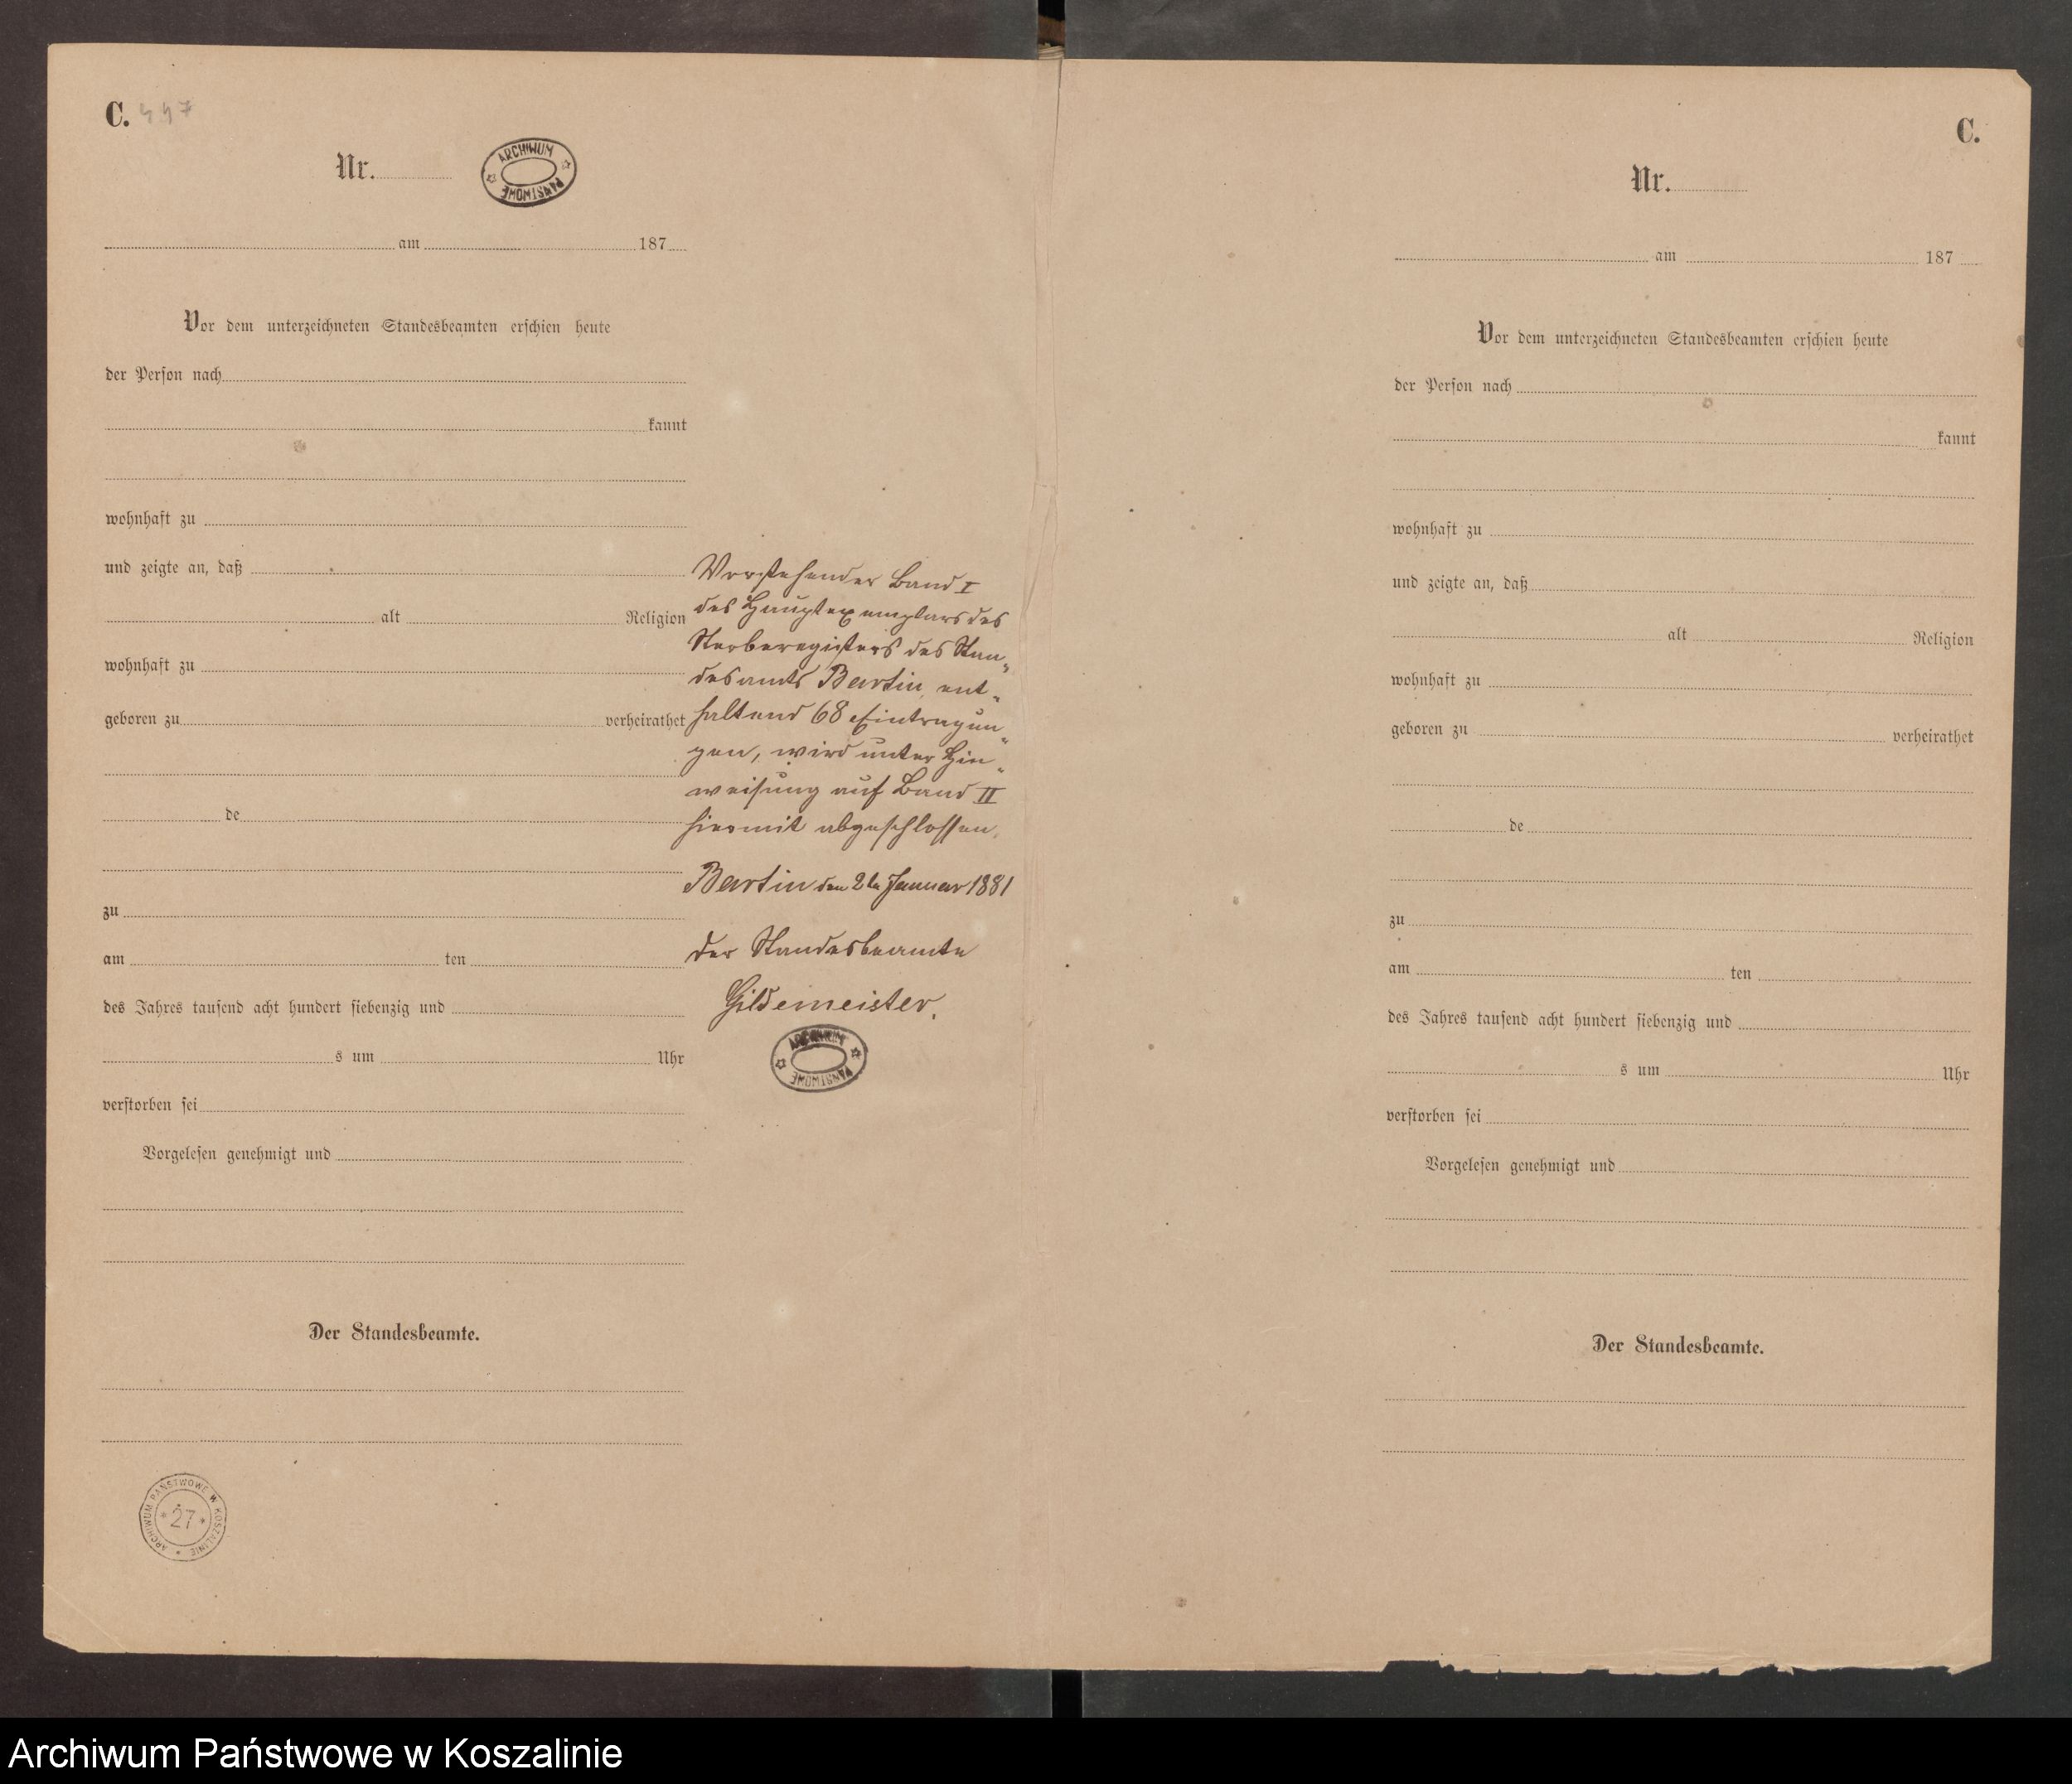 C. 447
Nr.
ARCHIWUM PAŃSTWOWE
am 187
Vor dem unterzeichneten Standesbeamten erschien heute
der Person nach
kannt
wohnhaft zu
und zeigte an, daß
alt Religion
wohnhaft zu
geboren zu verheirathet
de
zu
am ten
des Jahres tausend acht hundert siebenzig und
s um Uhr
verstorben sei
Vorgelesen genehmigt und
Der Standesbeamte.
ARCHIWUM PAŃSTWOWE W KOSZALINIE
27
Vorstehender Band I
des Hauptexemplars des
Sterberegisters des Stan„
desamts Bartin, ent„
haltend 68 Eintragun„
gen, wird unter Hin„
weisung auf Band II
hiermit abgeschlossen.
Bartin den 2ten Januar 1881
der Standesbeamte
Gildemeister.
ARCHIWUM PAŃSTWOWE
C.
Nr.
am 187
Vor dem unterzeichneten Standesbeamten erschien heute
der Person nach
kannt
wohnhaft zu
und zeigte an, daß
alt Religion
wohnhaft zu
geboren zu verheirathet
de
zu
am ten
des Jahres tausend acht hundert siebenzig und
s um Uhr
verstorben sei
Vorgelesen genehmigt und
Der Standesbeamte.
Archiwum Państwowe w Koszalinie